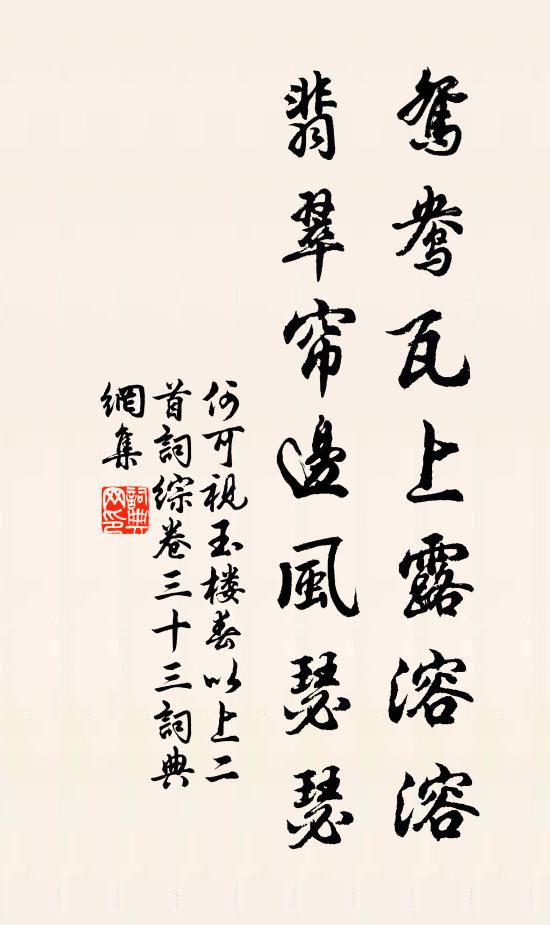 鴛鴦瓦上露溶溶
翡翠帘邊風瑟瑟
何可視玉楼春以上二
首詞综卷三十三詞典
網集
詞典
网印